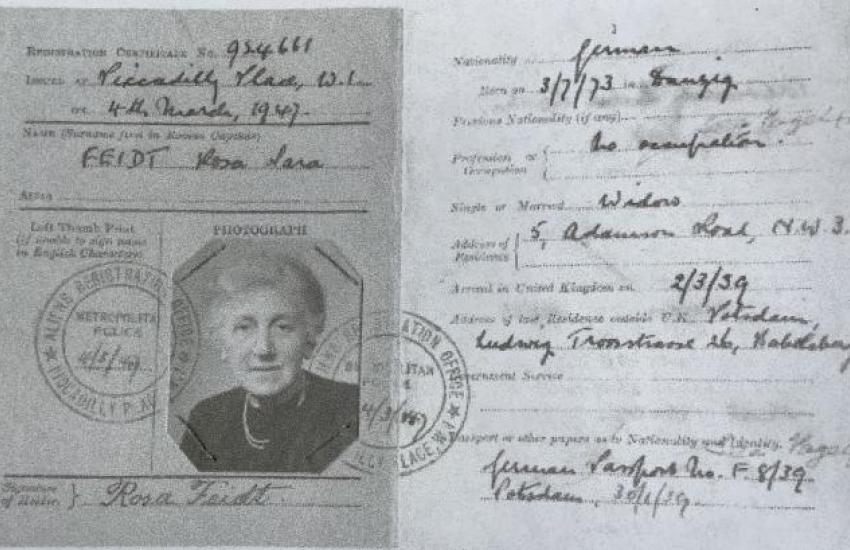 REGISTRATION CERTIFICATE No. 954661
ISSUED AT Piccadilly Place, W.1.
ON 4th March, 1947.
NAME (Surname first in Roman Capitals)
FEIDT Rosa Sara
ALIAS
Left Thumb Print
(if unable to sign name
in English Characters).
PHOTOGRAPH
ALIENS REGISTRATION OFFICE
METROPOLITAN
POLICE
4/3/947
PICCADILLY PLACE, W.1
REGISTRATION OFFICE
POLITAN
4/3/947
PLACE, W.1
Signature
of Holder
Rosa Feidt.
1
Nationality German
Born on 3/7/73 in Danzig
Previous Nationality (if any)
Profession or
Occupation
No occupation.
Single or Married Widow
Address of
Residence
5, Adamson Road, N.W.3.
Arrival in United Kingdom on 2/3/39
Address of last Residence outside U.K. Potsdam,
Ludwig 26,
Government Service
Passport or other papers as to Nationality and Identity.
German Passport No. F. 8/39.
Potsdam, 30/1/39.